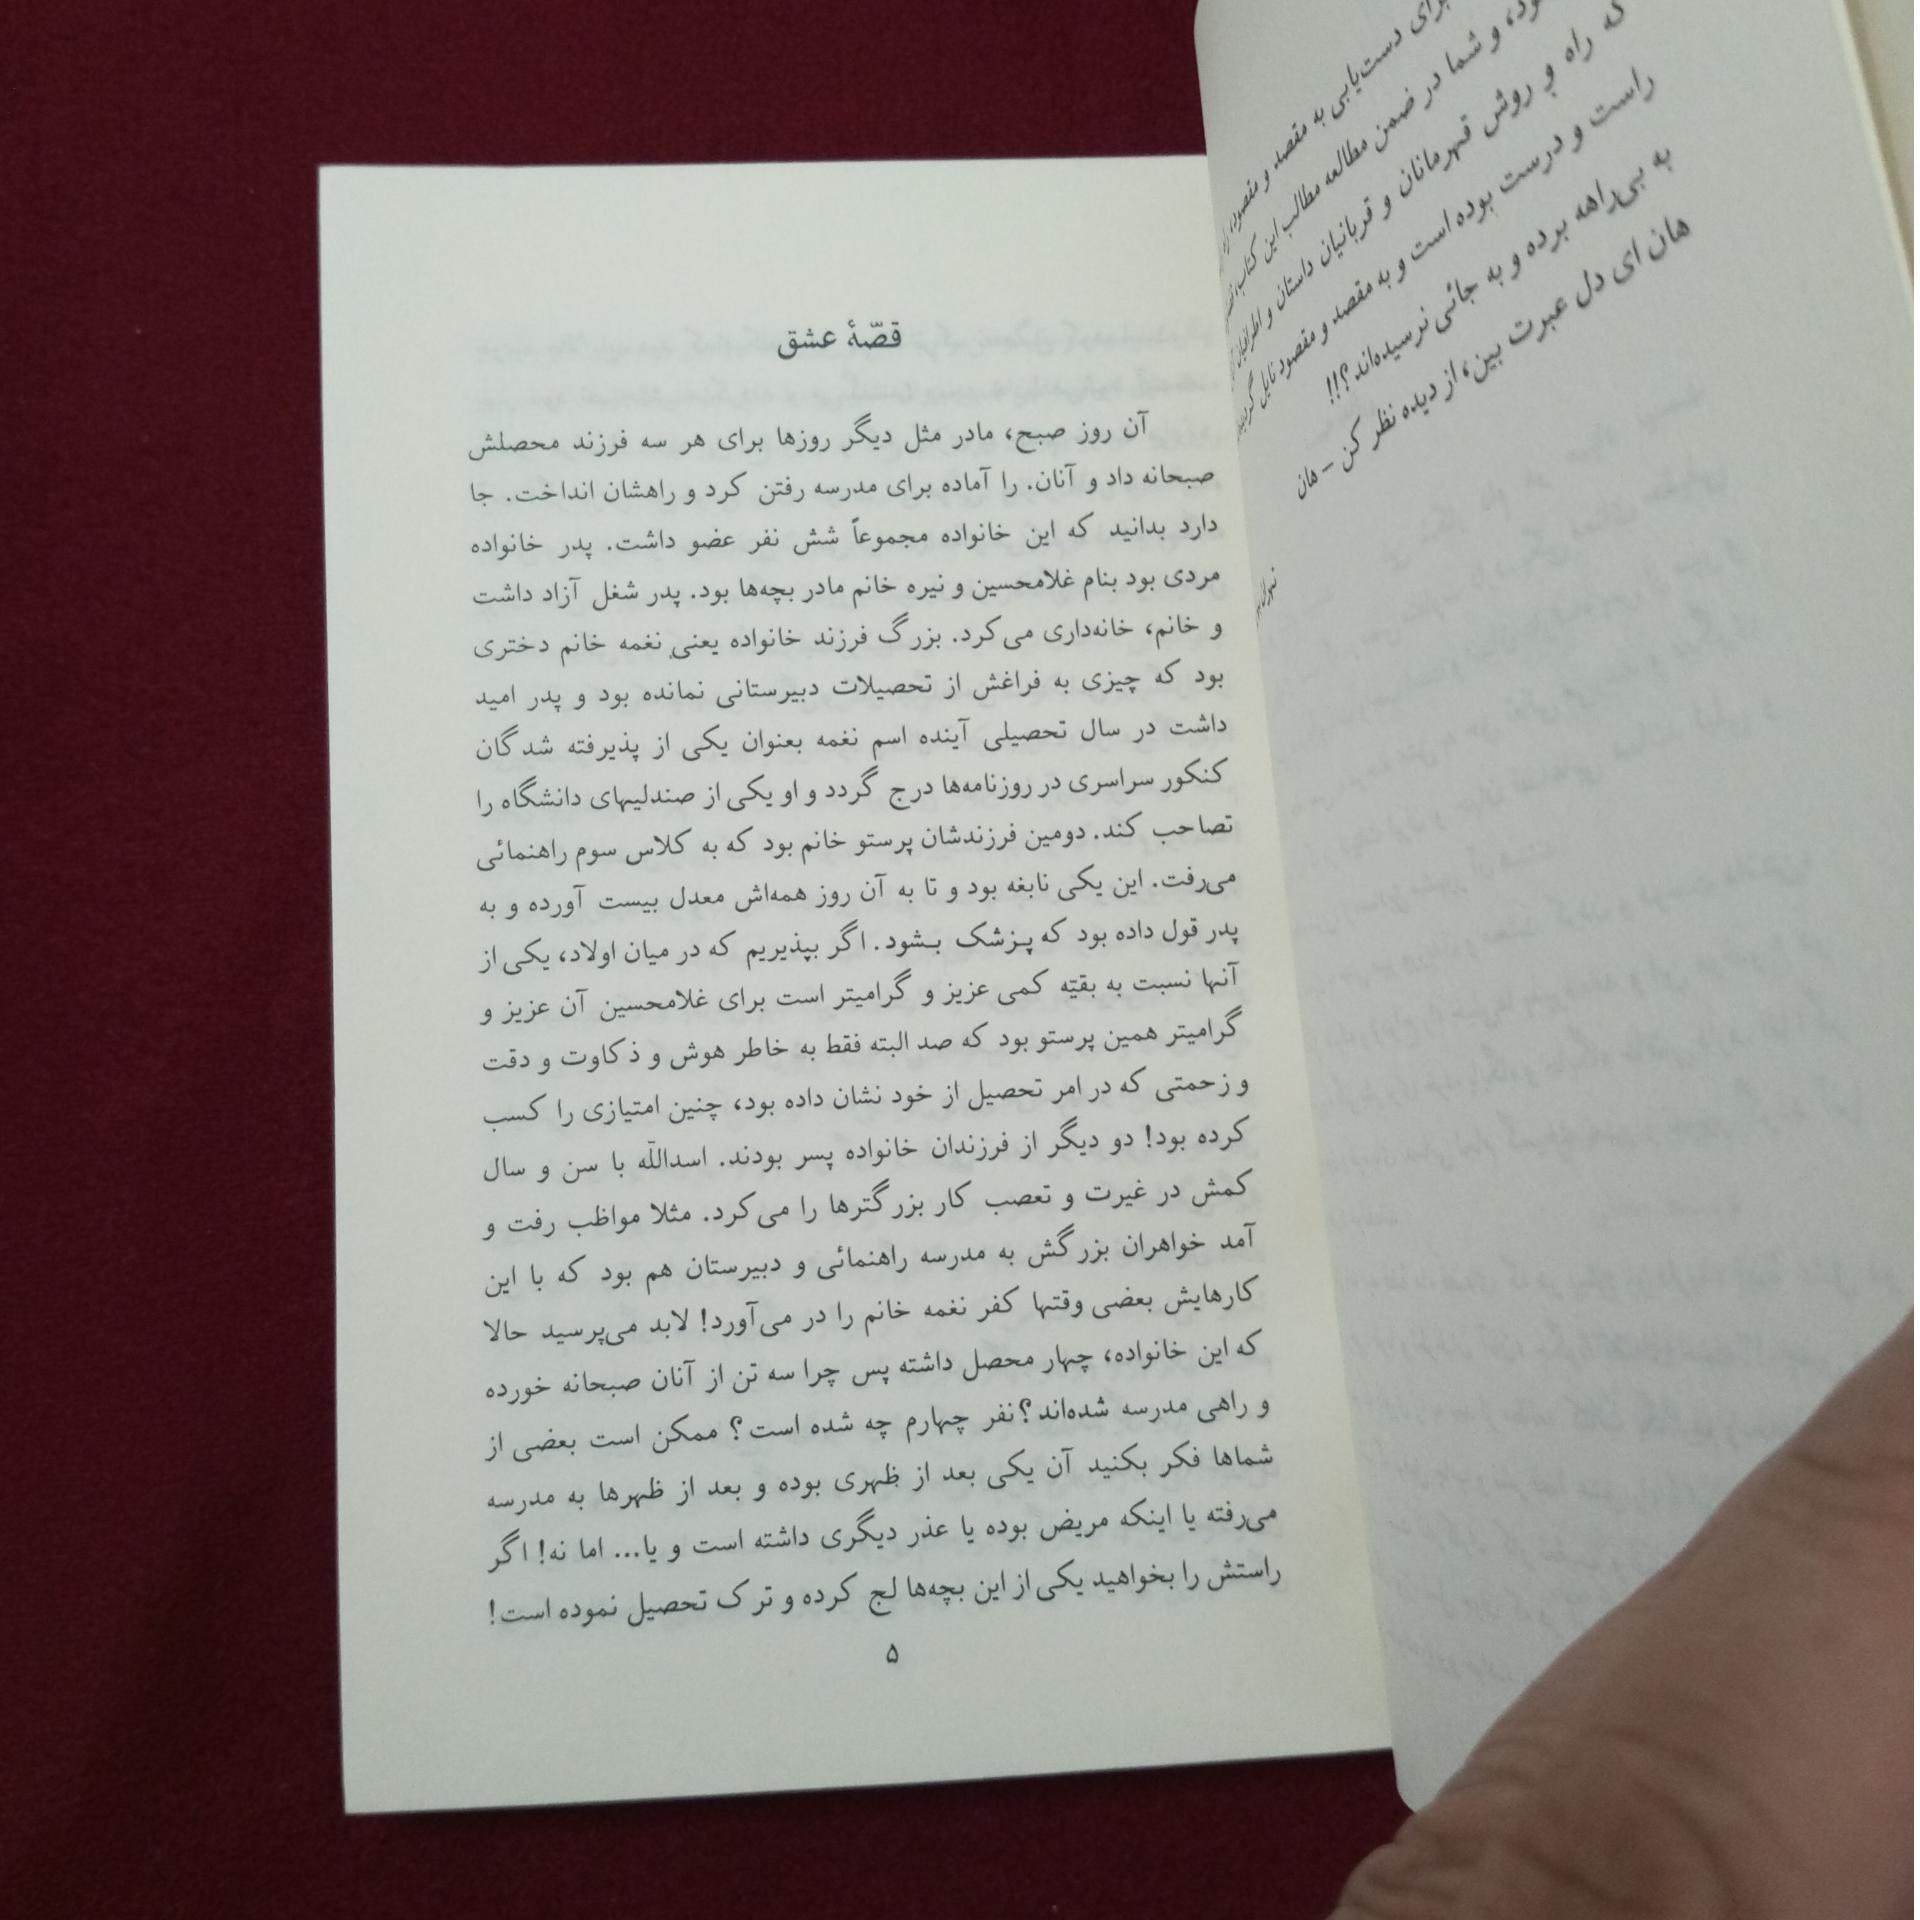 برای دست‌یابی به مقصد و مقصود،
و شما در ضمن مطالعه مطالب این کتاب،
که راه و روش قهرمانان و قربانیان داستان و اطرافیان
راست و درست بوده است و به مقصد و مقصود نایل
به بی‌راهه برده و به جائی نرسیده‌اند؟!!
هان ای دل عبرت بین، از دیده نظر کن – هان
قصّهٔ عشق
آن روز صبح، مادر مثل دیگر روزها برای هر سه فرزند محصلش
صبحانه داد و آنان. را آماده برای مدرسه رفتن کرد و راهشان انداخت. جا
دارد بدانید که این خانواده مجموعاً شش نفر عضو داشت. پدر خانواده
مردی بود بنام غلامحسین و نیره خانم مادر بچه‌ها بود. پدر شغل آزاد داشت
و خانم، خانه‌داری می‌کرد. بزرگ فرزند خانواده یعنی نغمه خانم دختری
بود که چیزی به فراغش از تحصیلات دبیرستانی نمانده بود و پدر امید
داشت در سال تحصیلی آینده اسم نغمه بعنوان یکی از پذیرفته شدگان
کنکور سراسری در روزنامه‌ها درج گردد و او یکی از صندلیهای دانشگاه را
تصاحب کند. دومین فرزندشان پرستو خانم بود که به کلاس سوم راهنمائی
می‌رفت. این یکی نابغه بود و تا به آن روز همه‌اش معدل بیست آورده و به
پدر قول داده بود که پزشک بشود. اگر بپذیریم که در میان اولاد، یکی از
آنها نسبت به بقیّه کمی عزیز و گرامیتر است برای غلامحسین آن عزیز و
گرامیتر همین پرستو بود که صد البته فقط به خاطر هوش و ذکاوت و دقت
و زحمتی که در امر تحصیل از خود نشان داده بود، چنین امتیازی را کسب
کرده بود! دو دیگر از فرزندان خانواده پسر بودند. اسداللّه با سن و سال
کمش در غیرت و تعصب کار بزرگترها را می‌کرد. مثلا مواظب رفت و
آمد خواهران بزرگش به مدرسه راهنمائی و دبیرستان هم بود که با این
کارهایش بعضی وقتها کفر نغمه خانم را در می‌آورد! لابد می‌پرسید حالا
که این خانواده، چهار محصل داشته پس چرا سه تن از آنان صبحانه خورده
و راهی مدرسه شده‌اند؟ نفر چهارم چه شده است؟ ممکن است بعضی از
شماها فکر بکنید آن یکی بعد از ظهری بوده و بعد از ظهرها به مدرسه
می‌رفته یا اینکه مریض بوده یا عذر دیگری داشته است و یا... اما نه! اگر
راستش را بخواهید یکی از این بچه‌ها لج کرده و ترک تحصیل نموده است!
۵